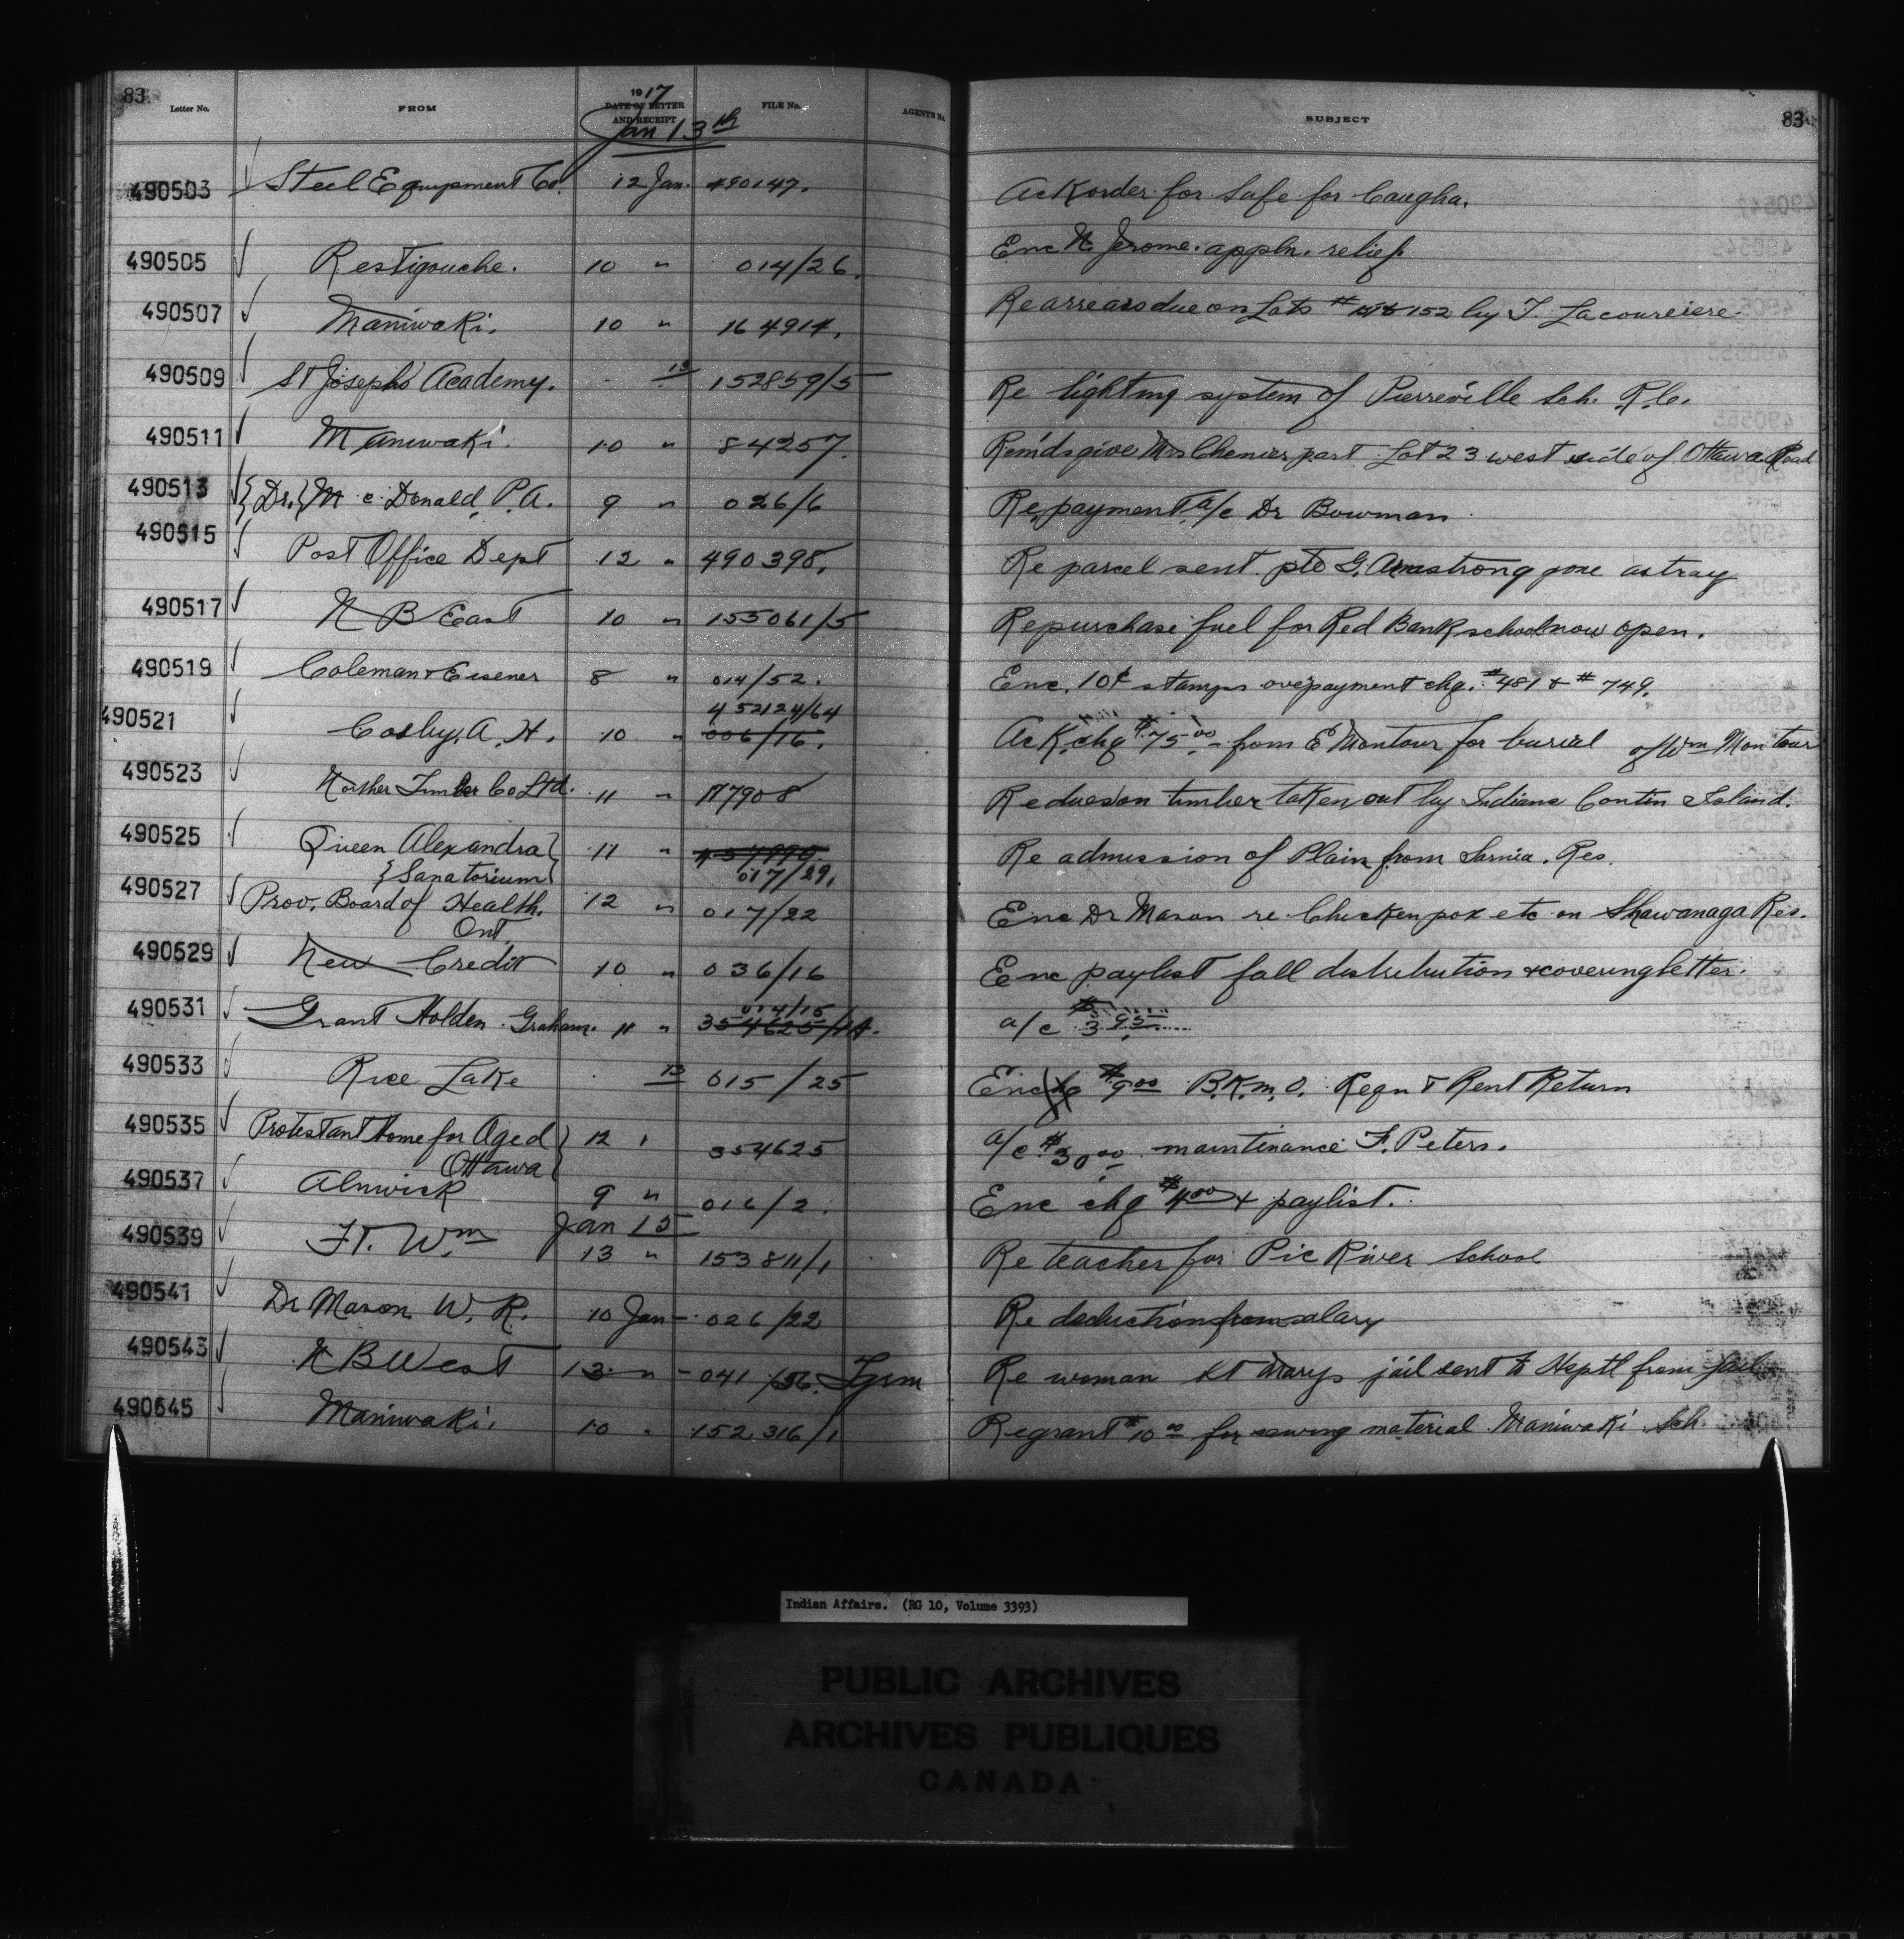 83
Letter No. FROM 1917 DATE OF LETTER AND RECEIPT FILE No. AGENT'S No. SUBJECT 83
Jan 13th
490503 Steel Equipment Co. 12 Jan. 490147. Ack order for Safe for Caugha.
490505 Restigouche. 10 " 014/26. Enc N. Jerome. appln. relief.
490507 Maniwaki. 10 " 164914. Re arrears due on Lots # 152 by T. Lacoureiere.
490509 St Josephs' Academy. 13 152859/5 Re lighting system of Pierreville Sch. R.C.
490511 Maniwaki. 10 " 84257. Remds give Mrs Chenier part Lot 23 west side of Ottawa Road
490513 {Dr.} Mc Donald, P.A. 9 " 026/6 Re payment a/c Dr Bowman
490515 Post Office Dept 12 " 490398. Re parcel sent pte G. Armstrong gone astray
490517 N B East 10 " 155061/5 Re purchase fuel for Red Bank school now open.
490519 Coleman & Eisener 8 " 014/52. Enc. 10¢ stamps overpayment chq. #481 & #749.
452124/64
490521 Cosby, A. H. 10 " 006/16. Ack. chq $75.00 - from E Montour for burial of Wm Montour
490523 Norther Timber Co Ltd. 11 " 117908 Re dues on timber taken out by Indians Contin Island.
490525 Queen Alexandra} 11 " Re admission of Plain from Sarnia. Res.
{Sanatorium} 017/29.
490527 Prov. Board of Health. 12 " 017/22 Enc Dr Mason re Chicken pox etc on Shawanaga Res.
Ont
490529 New Credit 10 " 036/16 Enc paylist fall distribution & covering letter.
014/15
490531 Grant Holden Graham. 11 " 354625/1A. a/c $3.95
490533 Rice Lake 13 015/25 Enc chq $9.00 B.K.M.O. Reqn & Rent Return
490535 Protestant Home for Aged} 12 " 354625 a/c $30.00 maintinance F. Peters.
Ottawa}
490537 Alnwick 9 " 016/2. Enc chq $4.00 & paylist.
Jan 15
490539 Ft. Wm 13 " 153811/1 Re teacher for Pic River School
490541 Dr Mason W. R. 10 Jan - 026/22 Re deduction from salary
490543 N B West 13 " - 041/56. Re woman St Marys jail sent to Hsptl from jail
490545 Maniwaki. 10 " 152316/1 Re grant $10.00 for sewing material Maniwaki Sch.
Indian Affairs. (RG 10, Volume 3393)
PUBLIC ARCHIVES
ARCHIVES PUBLIQUES
CANADA